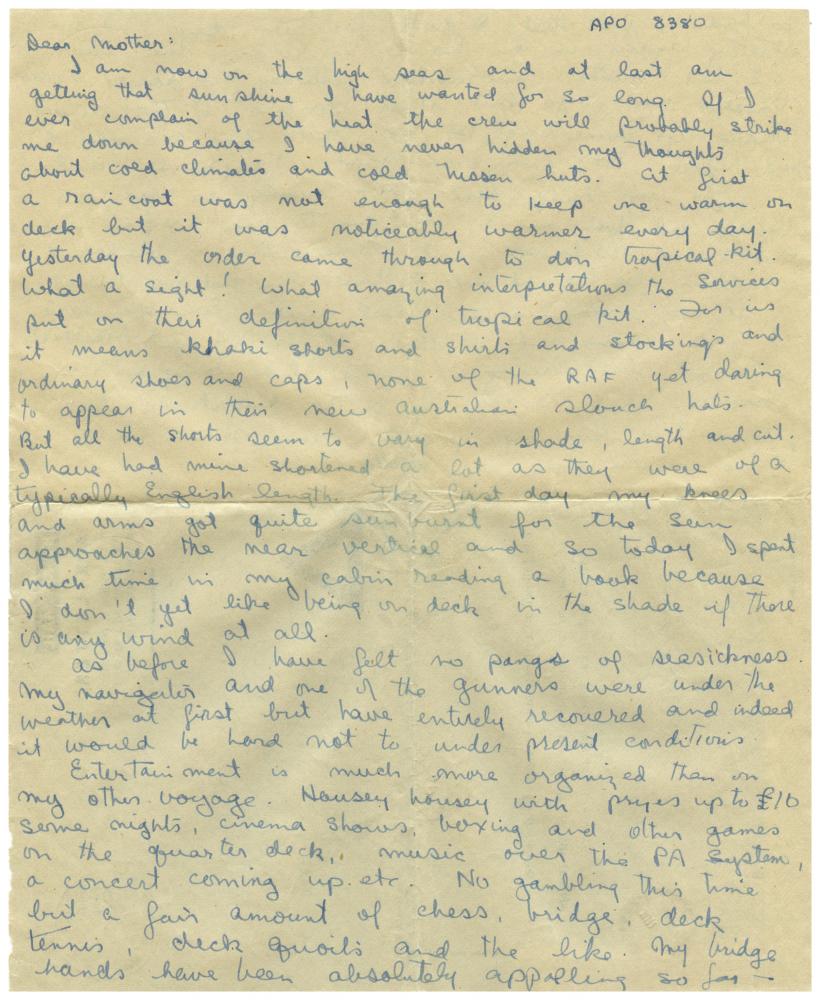 APO 8380
Dear Mother:
I am now on the high seas and at last am
getting that sunshine I have wanted for so long. If I
ever complain of the heat the crew will probably strike
me down because I have never hidden my thoughts
about cold climates and cold Nissen huts. At first
a raincoat was not enough to keep one warm on
deck but it was noticeably warmer every day.
Yesterday the order came through to don tropical-kit.
What a sight! What amazing interpretations the Services
put on their definition of tropical kit. For us
it means khaki shorts and shirts and stockings and
ordinary shoes and caps, none of the RAF yet daring
to appear in their new Australian slouch hats.
But all the shorts seem to vary in shade, length and cut.
I have had mine shortened a lot as they were of a
typically English length. The first day my knees
and arms got quite sunburnt for the sun
approaches the near vertical and so today I spent
much time in my cabin reading a book because
I don't yet like being on deck in the shade if there
is any wind at all.
As before I have felt no pangs of seasickness.
My navigator and one of the gunners were under the
weather at first but have entirely recovered and indeed
it would be hard not to under present conditions.
Entertainment is much more organized than on
my other voyage. Housey housey with prizes up to £10
some nights, cinema shows, boxing and other games
on the quarter deck, music over the PA system,
a concert coming up etc. No gambling this time
but a fair amount of chess, bridge, deck
tennis, deck quoits and the like. My bridge
hands have been absolutely appalling so far —